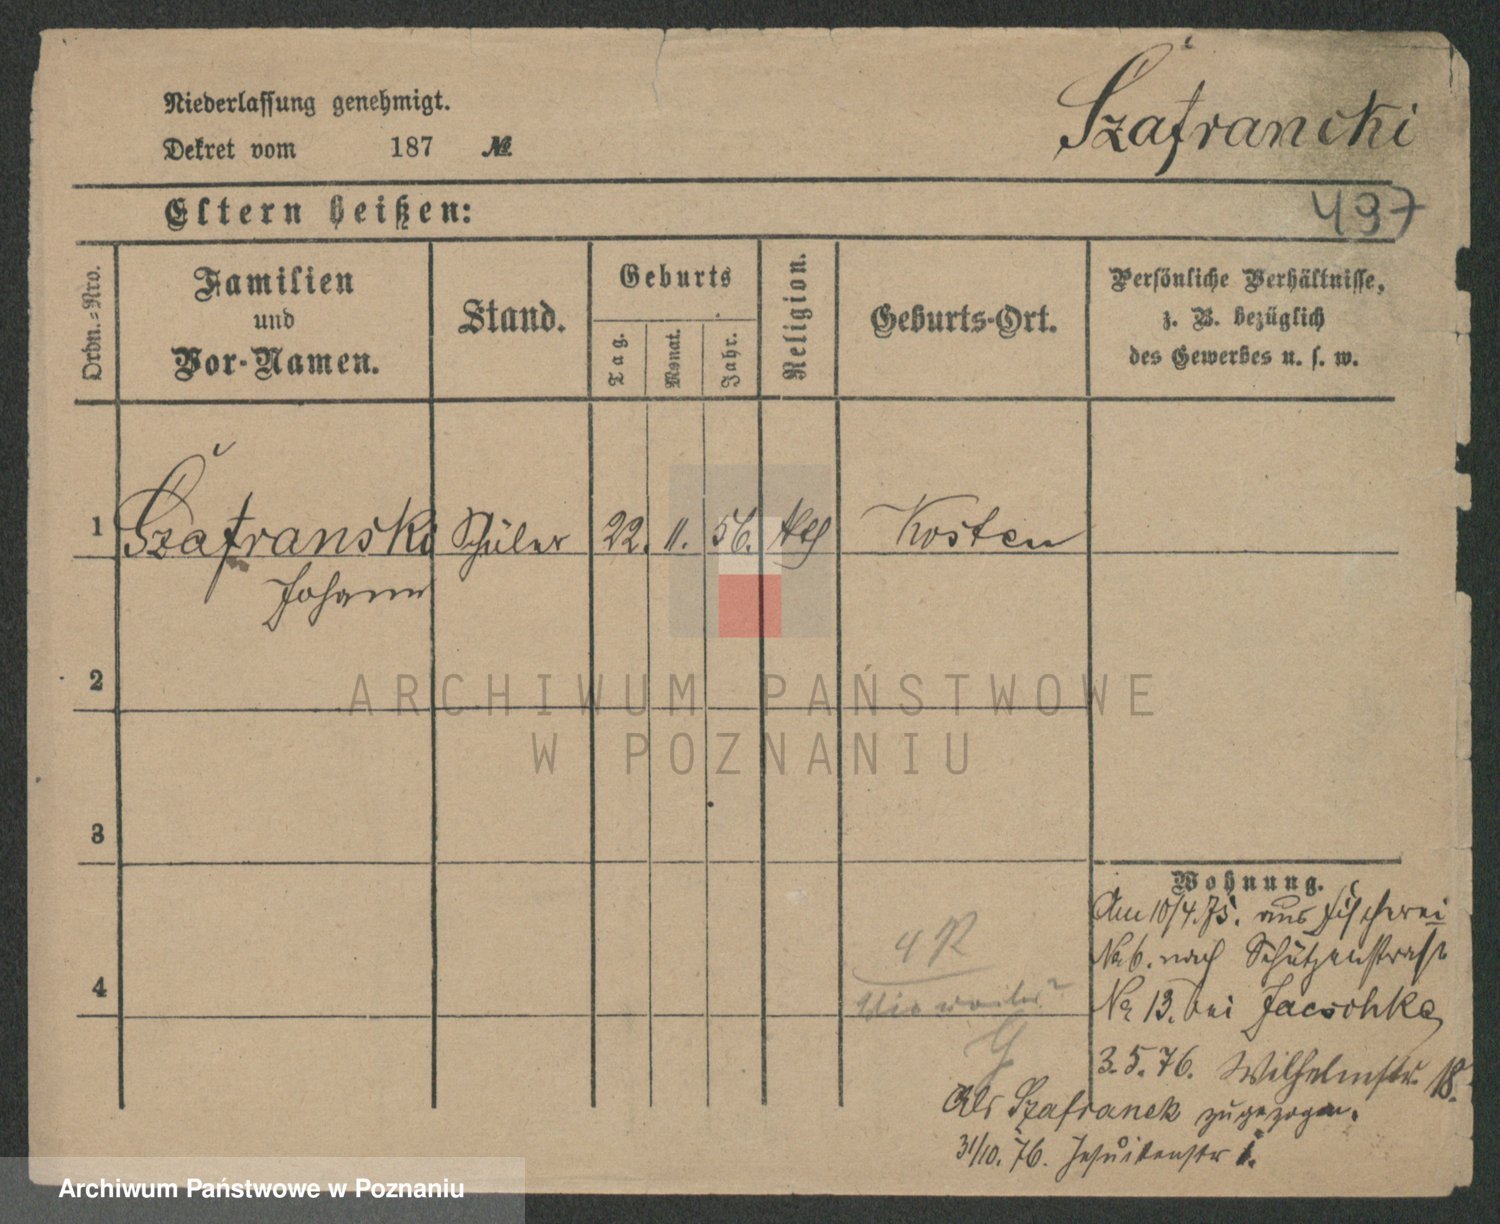 Niederlassung genehmigt.
Szafrancki
Dekret vom 187 №
Eltern heißen:
497
Ordn.-Nro.
Familien
und
Vor-Namen.
Stand.
Geburts
Tag.
Monat.
Jahr.
Religion.
Geburts-Ort.
Persönliche Verhältnisse,
z. B. bezüglich
des Gewerbes u. s. w.
1 Szafranski Schüler 22. 11. 56. Kth Kosten
Johann
2
ARCHIWUM PAŃSTWOWE
W POZNANIU
3
Wohnung.
Am 10/4. 75. aus Fischerei
No 6. nach Schützenstraße
4
No 13. bei Jaeschke
3. 5. 76. Wilhelmstr. 18.
Als Szafranek zugezogen.
31/10. 76. Jesuitenstr 1.
Archiwum Państwowe w Poznaniu